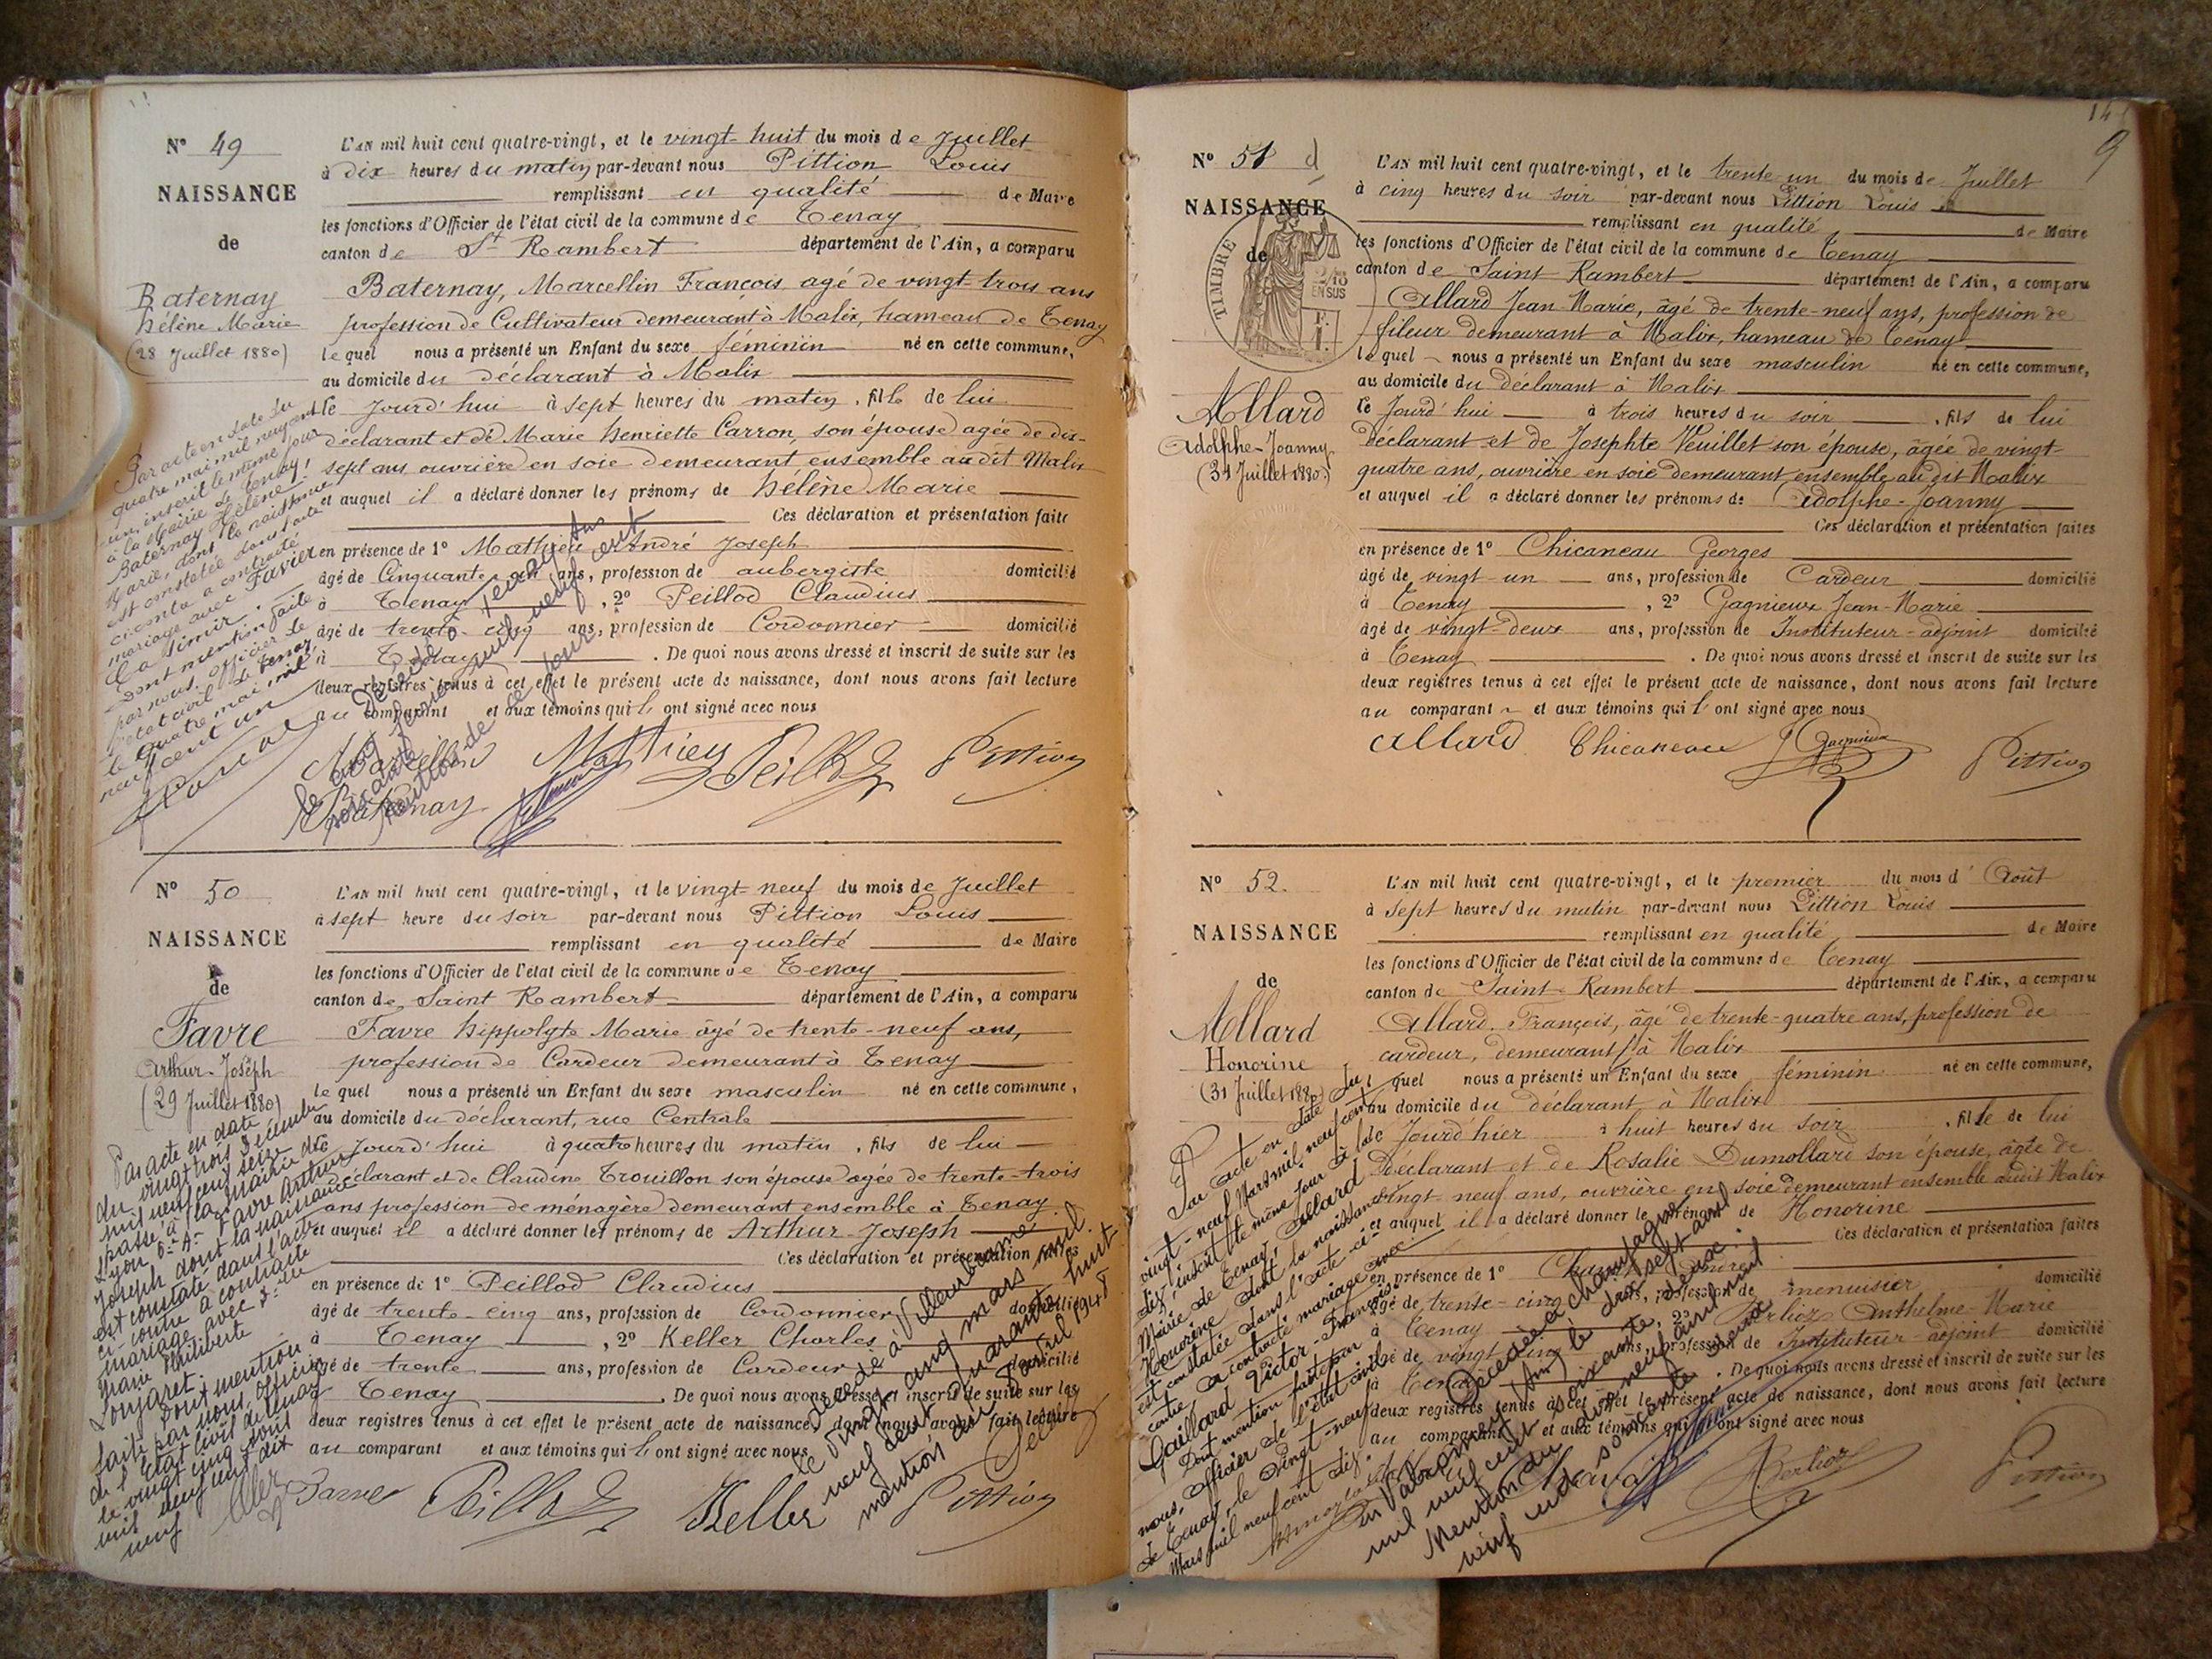 N° 49
NAISSANCE
de
Baternay
Hélène Marie
(28 Juillet 1880)
L'AN mil huit cent quatre-vingt, et le vingt-huit du mois de Juillet
à dix heures du matin par-devant nous Pittion Louis
remplissant en qualité de Maire
les fonctions d'Officier de l'état civil de la commune de Tenay
canton de St Rambert département de l'Ain, a comparu
Baternay, Marcellin François agé de vingt-trois ans
profession de Cultivateur demeurant à Malix, hameau de Tenay
lequel nous a présenté un Enfant du sexe féminin né en cette commune,
au domicile du déclarant à Malix
le jourd'hui à sept heures du matin, fille de lui
déclarant et de Marie Henriette Carron, son épouse agée de dix-
sept ans ouvrière en soie demeurant ensemble audit Malix
et auquel il a déclaré donner les prénoms de Hélène Marie
Ces déclaration et présentation faite
en présence de 1° Mathieu André Joseph
âgé de Cinquante ans, profession de aubergiste domicilié
à Tenay, 2° Peillod Claudius
âgé de trente-cinq ans, profession de Cordonnier domicilié
à Tenay. De quoi nous avons dressé et inscrit de suite sur les
deux registres tenus à cet effet le présent acte de naissance, dont nous avons fait lecture
au comparant et aux témoins qui l' ont signé avec nous
Marcellin Mathieu Peillod Pittion
Baternay
Par acte en date du
quatre mai mil neuf cent
un, inscrit le même jour
à la Mairie de Tenay,
Baternay Hélène
Marie, dont la naissance
est constatée dans l'acte
ci-contre a contracté
mariage avec Favier
Casimir.
Dont mention faite
par nous, officier de
l'état civil de Tenay,
le quatre mai mil
neuf cent un
Décédé à Tenay
N° 50
NAISSANCE
de
Favre
Arthur-Joseph
(29 Juillet 1880)
L'AN mil huit cent quatre-vingt, et le vingt-neuf du mois de Juillet
à sept heure du soir par-devant nous Pittion Louis
remplissant en qualité de Maire
les fonctions d'Officier de l'état civil de la commune de Tenay
canton de Saint Rambert département de l'Ain, a comparu
Favre Hippolyte Marie âgé de trente-neuf ans,
profession de Cardeur demeurant à Tenay
lequel nous a présenté un Enfant du sexe masculin né en cette commune,
au domicile du déclarant, rue Centrale
le jourd'hui à quatre heures du matin, fils de lui
déclarant et de Claudine Trouillon son épouse agée de trente-trois
ans profession de ménagère demeurant ensemble à Tenay
et auquel il a déclaré donner les prénoms de Arthur-Joseph
Ces déclaration et présentation faites
en présence de 1° Peillod Claudius
âgé de trente-cinq ans, profession de Cordonnier domicilié
à Tenay, 2° Keller Charles
âgé de trente ans, profession de Cardeur domicilié
à Tenay. De quoi nous avons dressé et inscrit de suite sur les
deux registres tenus à cet effet le présent acte de naissance, dont nous avons fait lecture
au comparant et aux témoins qui l' ont signé avec nous
Favre Peillod Keller Pittion
Par acte en date
du vingt trois Décembre
mil neuf cent seize
passé à la mairie de
Lyon 6e Ar Favre Arthur
Joseph dont la naissance
est constatée dans l'acte
ci-contre a contracté
mariage avec
Marie Philiberte
Lonjaret.
Dont mention
faite par nous, officier
de l'état civil de Tenay
le vingt cinq août
mil neuf cent dix
neuf
Décédé à Villeurbanne
le vingt cinq mars mil
neuf cent quarante huit
mention avril 1948
N° 51
NAISSANCE
de
TIMBRE
2/10
EN SUS
Allard
Adolphe-Joanny
(31 Juillet 1880)
9
L'AN mil huit cent quatre-vingt, et le trente-un du mois de Juillet
à cinq heures du soir par-devant nous Pittion Louis
remplissant en qualité de Maire
les fonctions d'Officier de l'état civil de la commune de Tenay
canton de Saint Rambert département de l'Ain, a comparu
Allard Jean-Marie, âgé de trente-neuf ans, profession de
fileur demeurant à Malix, hameau de Tenay
lequel nous a présenté un Enfant du sexe masculin né en cette commune,
au domicile du déclarant à Malix
le jourd'hui à trois heures du soir, fils de lui
déclarant et de Josephte Veuillet son épouse, âgée de vingt-
quatre ans, ouvrière en soie demeurant ensemble au dit Malix
et auquel il a déclaré donner les prénoms de Adolphe-Joanny
Ces déclaration et présentation faites
en présence de 1° Chicaneau Georges
âgé de vingt-un ans, profession de Cardeur domicilié
à Tenay, 2° Gagnieux Jean-Marie
âgé de vingt-deux ans, profession de Instituteur-adjoint domicilié
à Tenay. De quoi nous avons dressé et inscrit de suite sur les
deux registres tenus à cet effet le présent acte de naissance, dont nous avons fait lecture
au comparant et aux témoins qui l' ont signé avec nous
Allard Chicaneau Gagnieux Pittion
N° 52.
NAISSANCE
de
Allard
Honorine
(31 Juillet 1880)
L'AN mil huit cent quatre-vingt, et le premier du mois d' Août
à sept heures du matin par-devant nous Pittion Louis
remplissant en qualité de Maire
les fonctions d'Officier de l'état civil de la commune de Tenay
canton de Saint-Rambert département de l'Ain, a comparu
Allard François, âgé de trente-quatre ans, profession de
cardeur, demeurant à Malix
lequel nous a présenté un Enfant du sexe féminin né en cette commune,
au domicile du déclarant à Malix
le jourd'hier à huit heures du soir, fille de lui
déclarant et de Rosalie Dumollard son épouse, âgée de
vingt-neuf ans, ouvrière en soie demeurant ensemble audit Malix
et auquel il a déclaré donner le prénom de Honorine
Ces déclaration et présentation faites
en présence de 1°
âgé de trente-cinq ans, profession de menuisier domicilié
à Tenay, 2° Berlioz Anthelme-Marie
âgé de vingt-cinq ans, profession de Instituteur-adjoint domicilié
à Tenay. De quoi nous avons dressé et inscrit de suite sur les
deux registres tenus à cet effet le présent acte de naissance, dont nous avons fait lecture
au comparant et aux témoins qui l' ont signé avec nous
Berlioz Pittion
Par acte en date du
vingt-neuf Mars mil neuf cent
dix, inscrit le même jour à la
Mairie de Tenay, Allard
Honorine dont la naissance
est constatée dans l'acte ci-
contre, a contracté mariage avec
Gaillard Victor-François
Dont mention faite par
nous, officier de l'état civil
de Tenay, le vingt-neuf
Mars mil neuf cent dix.
Décédée à Champagne
en Valromey (Ain) le dix sept avril
mil neuf cent soixante deux.
Mention du dix neuf avril mil
neuf cent soixante deux